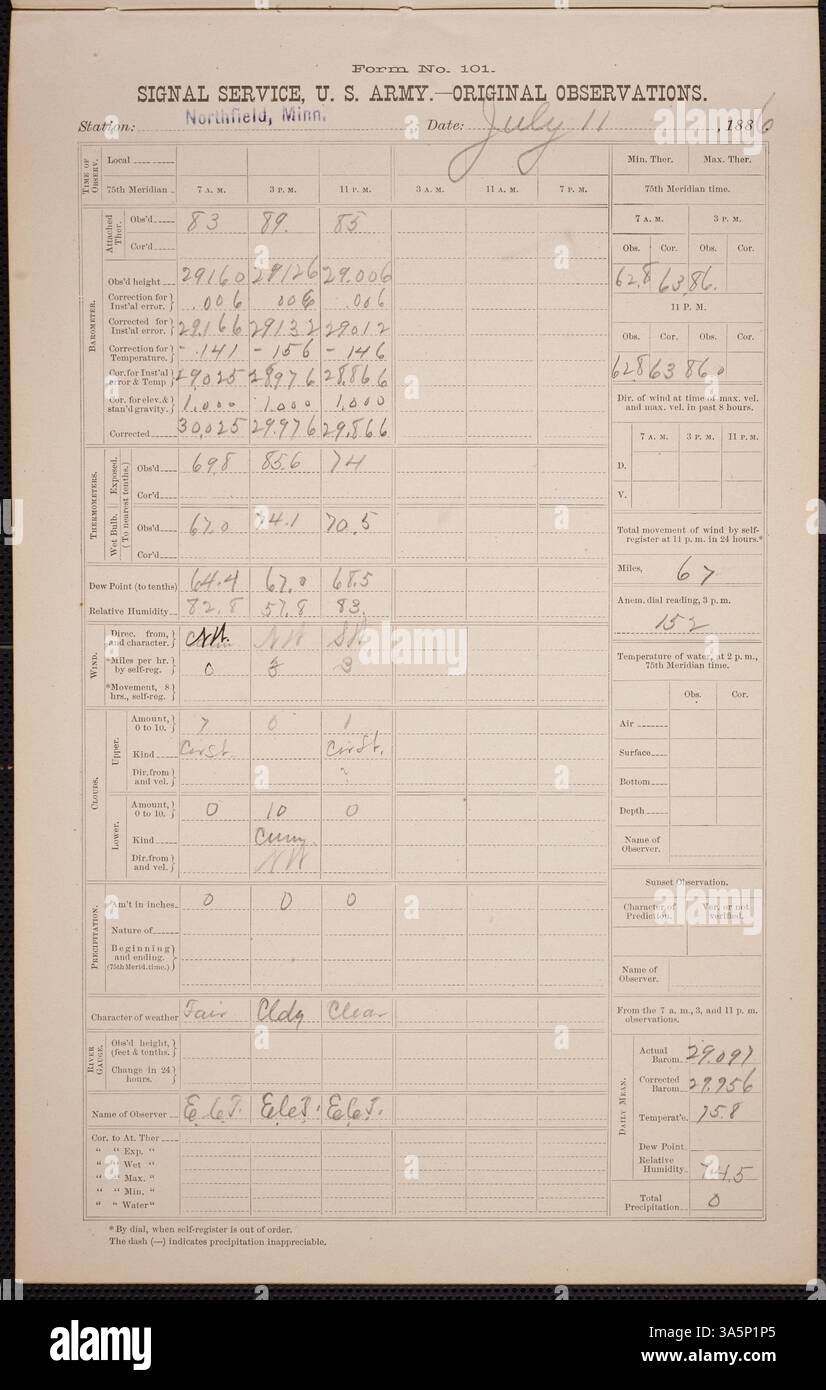 Form No. 101.
SIGNAL SERVICE, U. S. ARMY.—ORIGINAL OBSERVATIONS.
Station: Northfield, Minn. Date: July 11, 1886
TIME OF OBSERV.
Local
75th Meridian 7 A. M. 3 P. M. 11 P. M. 3 A. M. 11 A. M. 7 P. M.
Attached Ther.
Obs'd 83 89. 85
Cor'd
BAROMETER.
Obs'd height 29160 29126 29.006
Correction for Inst'al error. .006 006 .006
Corrected for Inst'al error. 29.166 29132 29012
Correction for Temperature. - .141 - 156 - 146
Cor. for Inst'al error & Temp 29025 28.976 28.866
Cor. for elev. & stan'd gravity. 1.000 1.000 1.000
Corrected 30.025 29.976 29.866
THERMOMETERS.
Exposed. (To nearest tenths.)
Obs'd 69.8 85.6 74
Cor'd
Wet Bulb.
Obs'd 67.0 74.1 70.5
Cor'd
Dew Point (to tenths) 64.4 67.0 68.5
Relative Humidity 82.8 57.8 83.
WIND.
Direc. from, and character. NW
*Miles per hr. by self-reg. 0 3
*Movement, 8 hrs., self-reg.
CLOUDS.
Upper.
Amount, 0 to 10. 7 0 1
Kind CirSt. CirSt.
Dir. from and vel. ?
Lower.
Amount, 0 to 10. 0 10 0
Kind Cum.
Dir. from and vel. NW
PRECIPITATION.
Am't in inches. 0 0 0
Nature of
Beginning and ending. (75th Merid. time.)
Character of weather Fair Cldy Clear
RIVER GAUGE.
Obs'd height, (feet & tenths.
Change in 24 hours.
Name of Observer E.C.T. E.C.T. E.C.T.
Cor. to At. Ther
" " Exp. "
" " Wet "
" " Max. "
" " Min. "
" " Water"
* By dial, when self-register is out of order.
The dash (—) indicates precipitation inappreciable.
Min. Ther. Max. Ther.
75th Meridian time.
7 A. M. 3 P. M.
Obs. Cor. Obs. Cor.
62.8 63 86.
11 P. M.
Obs. Cor. Obs. Cor.
62.8 63 86 0
Dir. of wind at time of max. vel. and max. vel. in past 8 hours.
7 A. M. 3 P. M. 11 P. M.
D.
V.
Total movement of wind by self-register at 11 p. m. in 24 hours.*
Miles, 67
Anem. dial reading, 3 p. m.
152
Temperature of water, at 2 p. m., 75th Meridian time.
Obs. Cor.
Air
Surface
Bottom
Depth
Name of Observer.
Sunset Observation.
Character of Prediction. Ver. or not verified.
Name of Observer.
From the 7 a. m., 3, and 11 p. m. observations.
DAILY MEAN.
Actual Barom. 29.097
Corrected Barom. 29.956
Temperat'e. 75.8
Dew Point
Relative Humidity 74.5
Total Precipitation 0
alamy
Image ID: 3A5P1P5
www.alamy.com